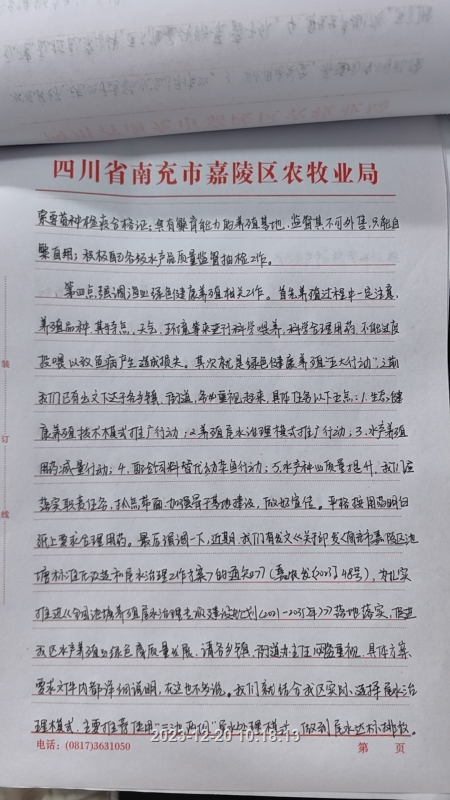 四川省南充市嘉陵区农牧业局
索要苗种检疫合格证；具有繁育能力的养殖基地，监督其不可外售，只能自
繁自用；积极配合各级水产品质量监督抽检工作。
第四点强调渔业绿色健康养殖相关工作。首先养殖过程中一定注意，
养殖品种，其特点，天气，环境等来进行科学喂养，科学合理用药，不能过度
投喂以致鱼病产生造成损失。其次就是绿色健康养殖"五大行动"，之前
我们已有出文下达于各乡镇、街道，务必重视起来，具体任务以下五点：1.生态健
康养殖技术模式推广行动；2.养殖尾水治理模式推广行动；3.水产养殖
用药减量行动；4.配合饲料替代幼杂鱼行动；5.水产种业质量提升，我们应
落实职责任务，抓点带面，加强骨干基地建设，做好宣传。严格按用药明白
纸上要求合理用药。最后强调一下，近期，我们有发文《关于印发<南充市嘉陵区池
塘标准化改造和尾水治理工作方案>的通知》（嘉农发〔2023〕48号），为扎实
推进《全国池塘养殖尾水治理专项建设规划（2021-2035年）》落地落实，促进
我区水产养殖业绿色高质量发展，请各乡镇、街道办主任必须重视，具体方案、
要求文件内都详细说明，在这也不多说。我们就结合我区实际，选择尾水治
理模式，主要推荐使用"三池两坝"尾水处理模式，做到尾水达标排放。
电话：(0817)3631050
第 页
2023-12-20 10:18:19
装
订
线